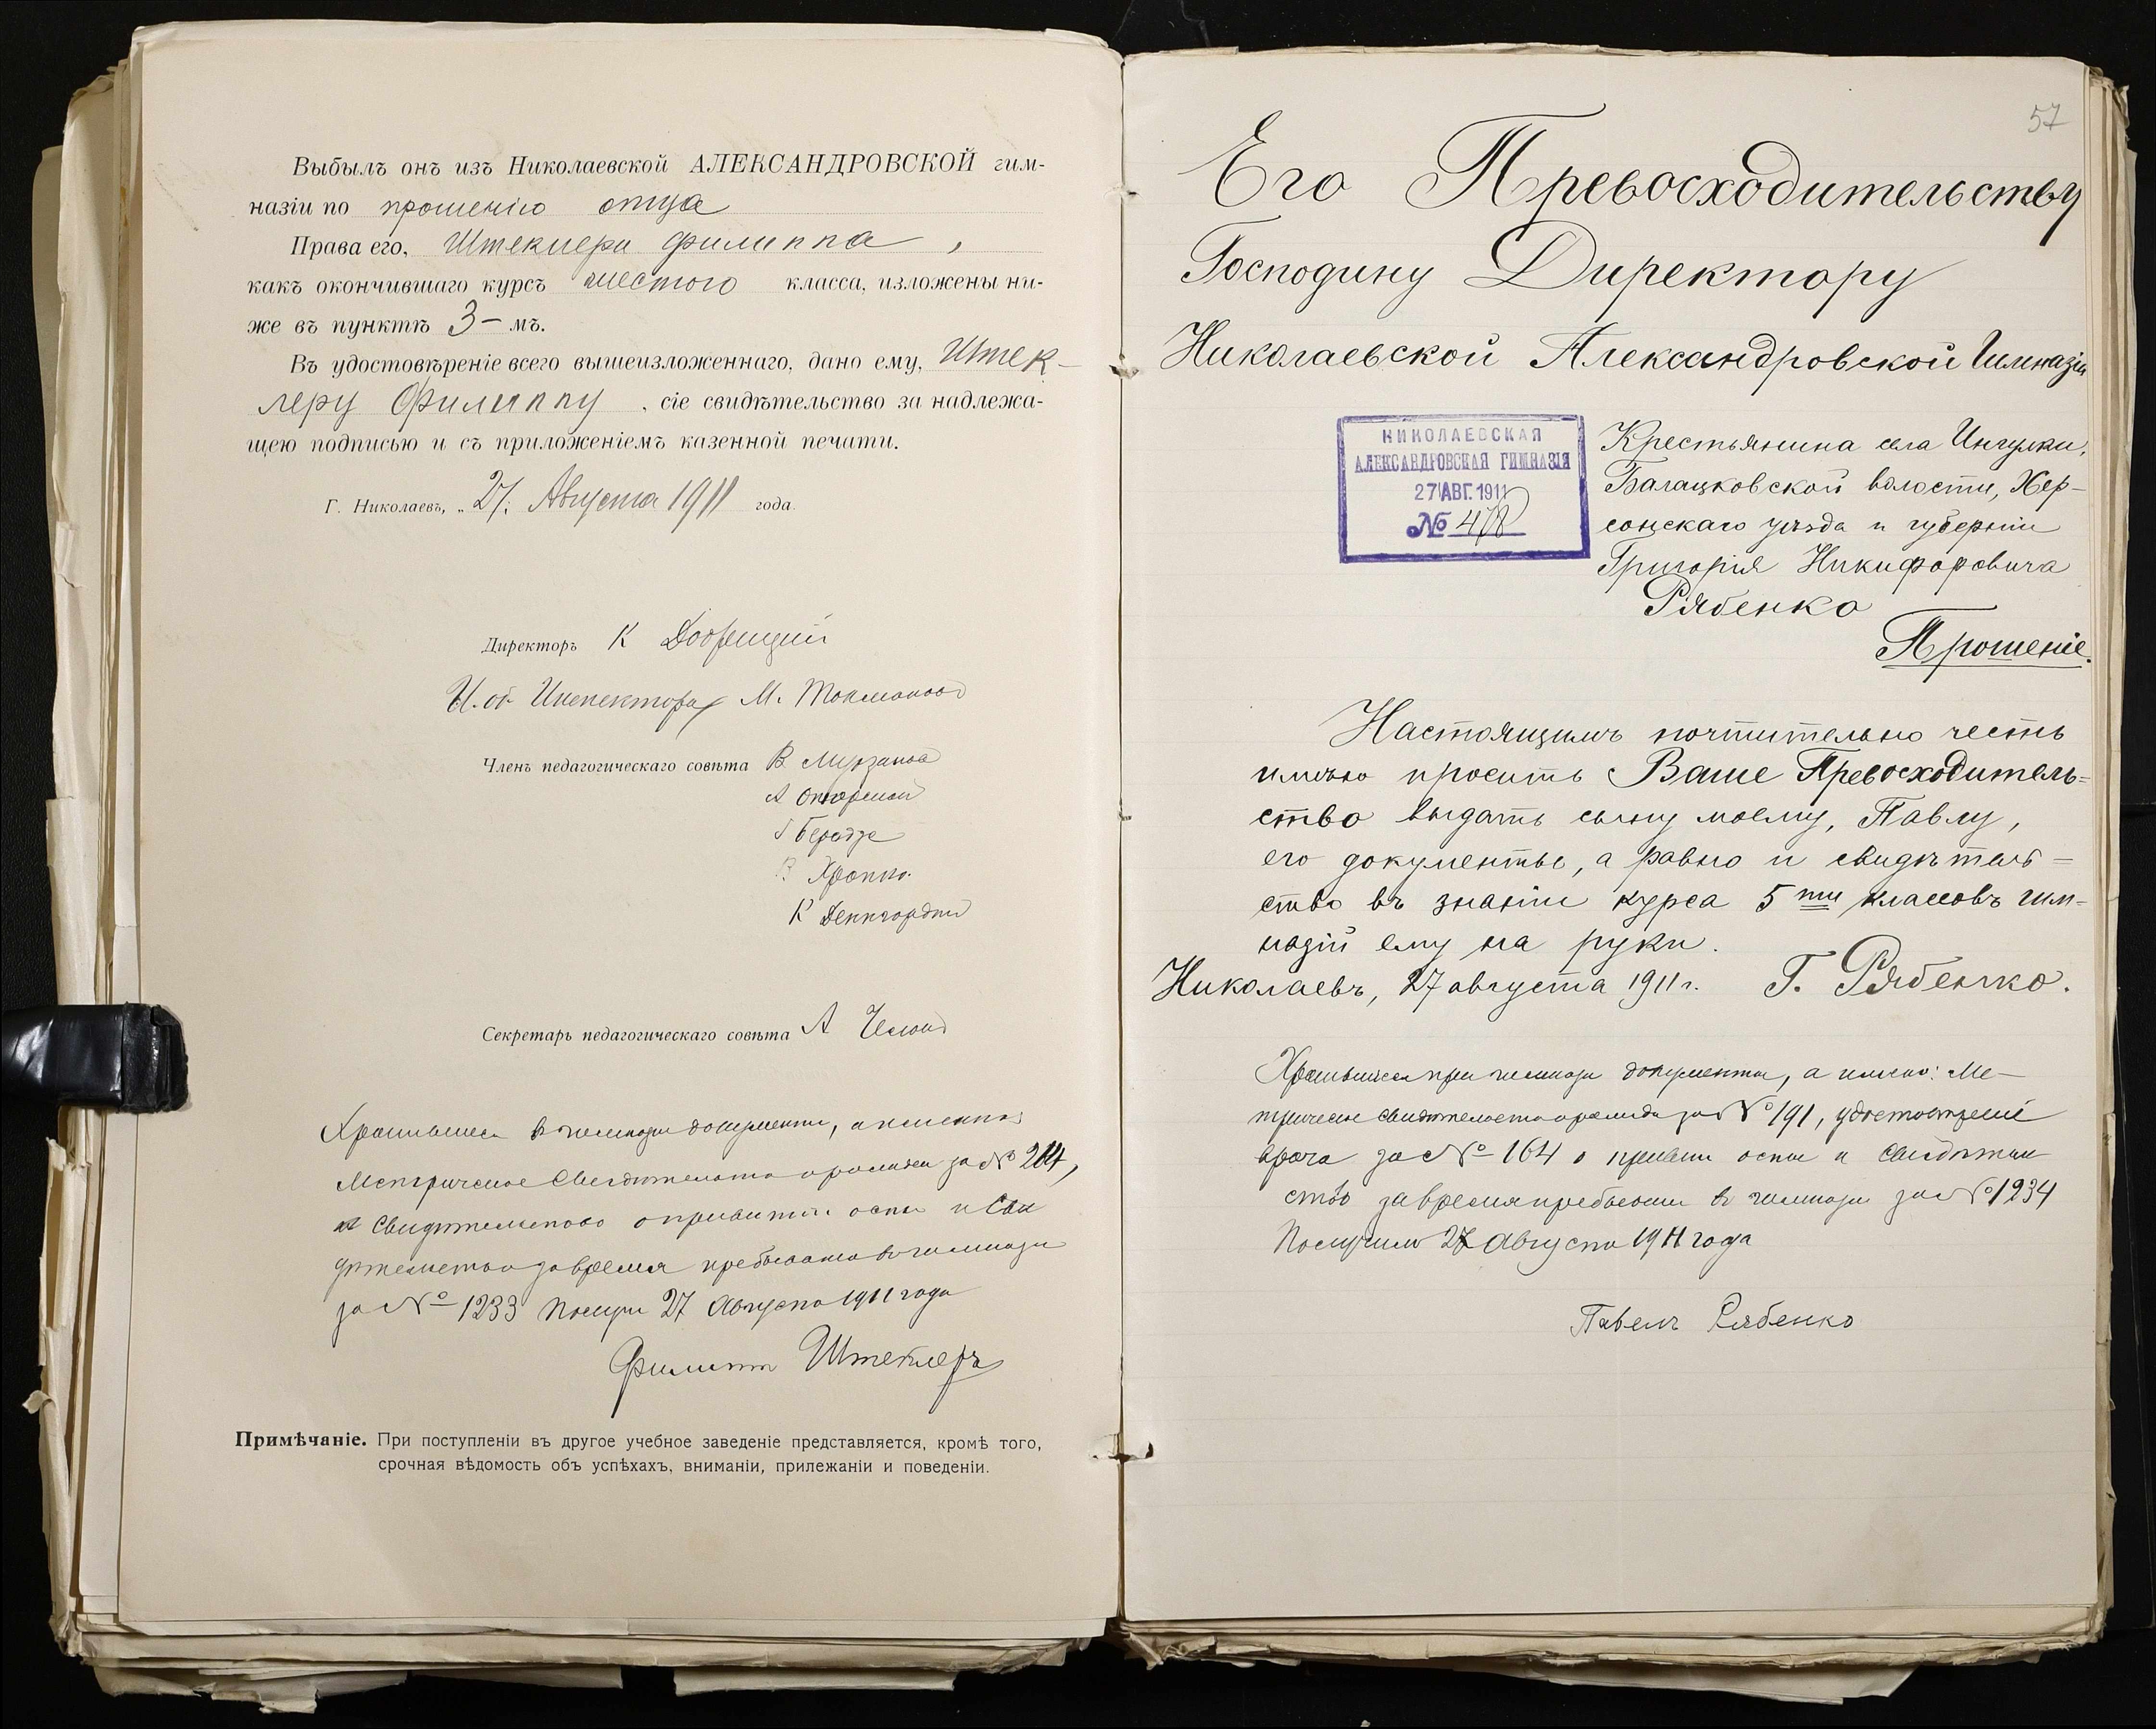 Выбылъ онъ изъ Николаевской АЛЕКСАНДРОВСКОЙ гим-
назіи по прошенію отца
Права его, Штеклера Филиппа ,
какъ окончившаго курсъ шестого класса, изложены ни-
же въ пунктѣ 3-мъ.
Въ удостовѣреніе всего вышеизложеннаго, дано ему, Штек-
леру Филиппу , сіе свидѣтельство за надлежа-
щею подписью и съ приложеніемъ казенной печати.
Г. Николаевъ, „ 27: Августа 1911 года.
Директоръ К
И. об Инспектора М.
Членъ педагогическаго совѣта В
А
К
Секретарь педагогическаго совѣта А
Хранившіеся въ гимназіи документы, а именно:
Метрическое Свидѣтельство о рожденіи за № 204,
Свидѣтельство о привитіи оспы и Сви
дѣтельство за время пребыванія въ гимназіи
за № 1233 27 Августа 1911 года
Филиппъ Штеклеръ
Примѣчаніе. При поступленіи въ другое учебное заведеніе представляется, кромѣ того,
срочная вѣдомость объ успѣхахъ, вниманіи, прилежаніи и поведеніи.
57
Его Превосходительству
Господину Директору
Николаевской Александровской Гимназіи
НИКОЛАЕВСКАЯ
АЛЕКСАНДРОВСКАЯ ГИМНАЗІЯ
27 АВГ. 1911
№ 478
Крестьянина села Ингулки,
Балацковской волости, Хер-
сонскаго уѣзда и губерніи
Григорія Никифоровича
Рябенко
Прошеніе.
Настоящимъ почтительно честь
имѣю просить Ваше Превосходитель=
ство выдать сыну моему, Павлу,
его документы, а равно и свидѣтель=
ство въ знаніи курса 5ти классовъ гим=
назій ему на руки.
Николаевъ, 27 августа 1911 г. Г. Рябенко.
Хранившіеся при гимназіи документы, а именно: Ме-
трическое свидѣтельство о рожденіи за № 191, удостовѣреніе
врача за № 164 о привитіи оспы и Свидѣтель
ство за время пребыванія въ гимназіи за № 1234
Получилъ 27 Августа 1911 года
Павелъ Рябенко